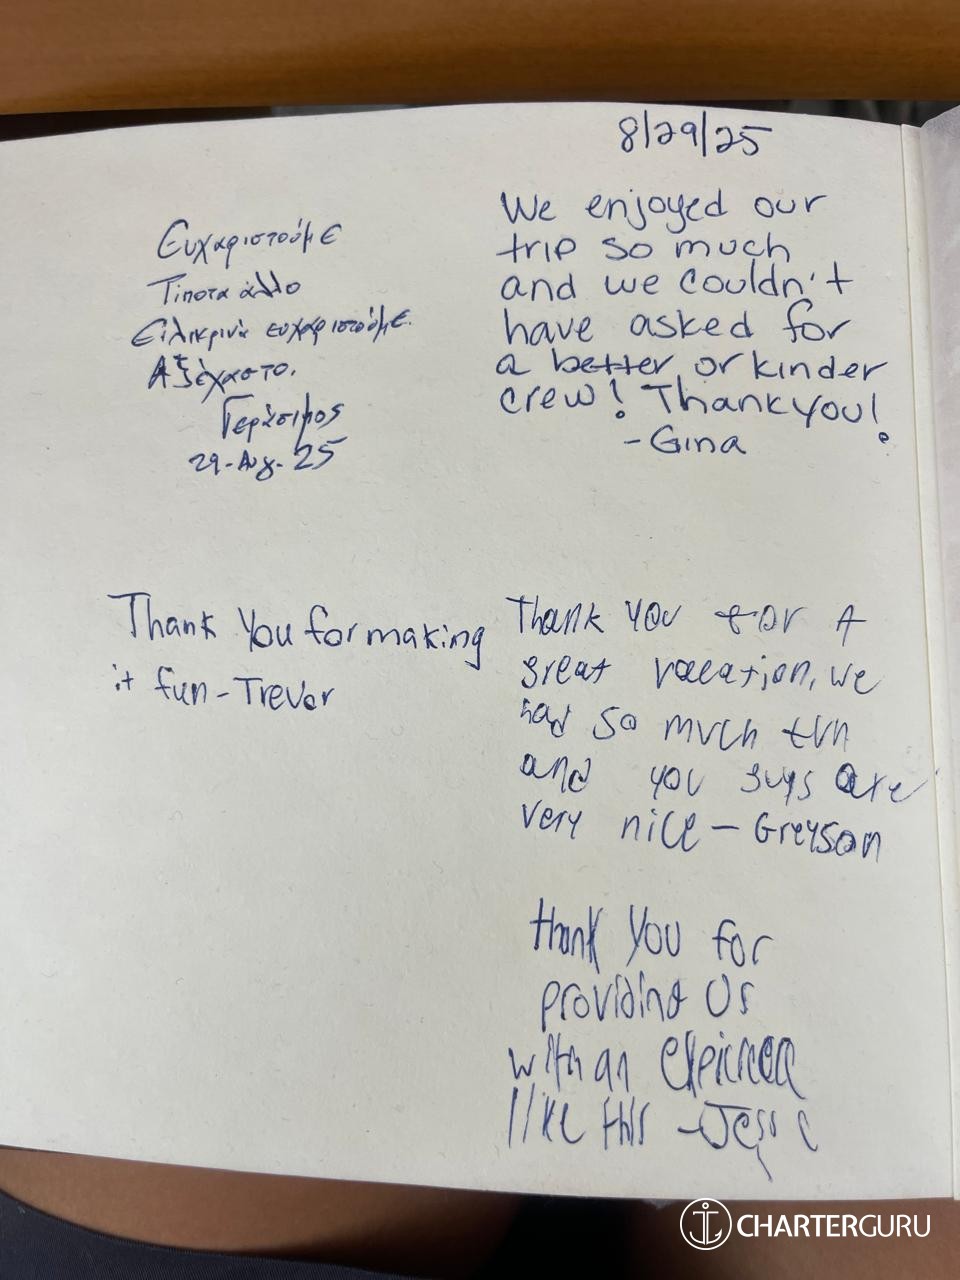 8/29/25
Ευχαριστούμε
Τίποτα άλλο
Ειλικρινά ευχαριστούμε.
Αξέχαστο.
Γεράσιμος
29-Aug-25
We enjoyed our
trip so much
and we couldn't
have asked for
a better or kinder
crew! Thank you!
-Gina
Thank you for making
it fun - Trevor
Thank you for A
great vacation, we
had so much fun
and you guys are
very nice - Greyson
thank you for
providing us
with an
like this - Jesse
CHARTERGURU